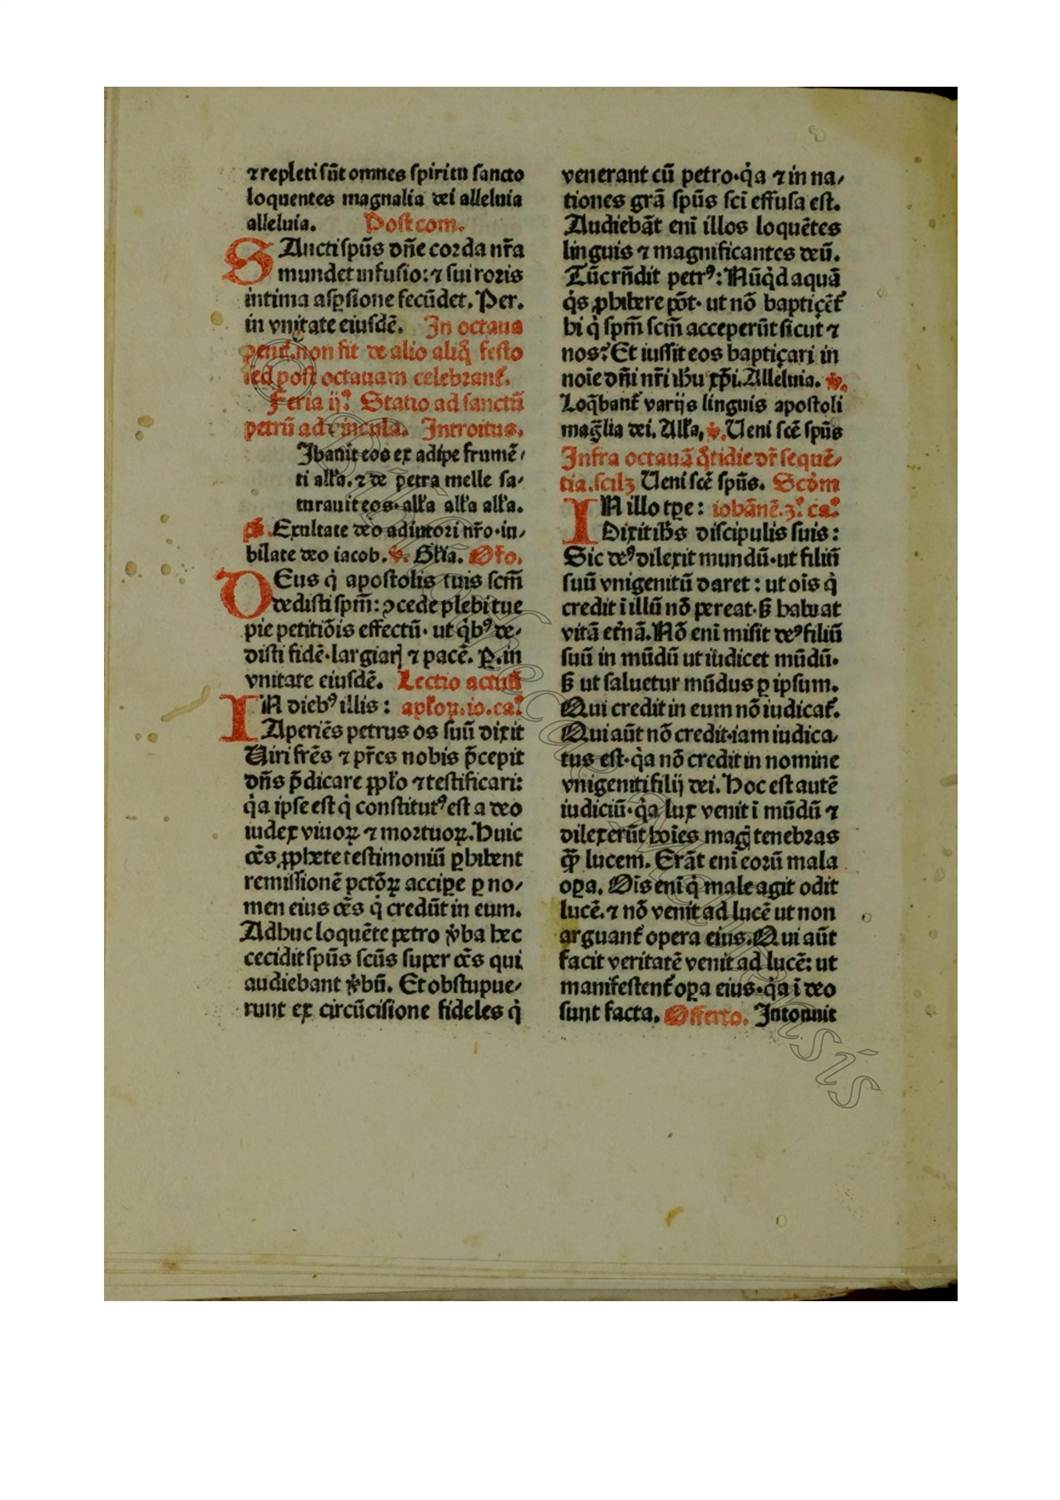 ⁊ repleti sūt omnes spiritu sancto
loquentes magnalia dei alleluia
alleluia. Postcom.
SAncti spūs dn̄e corda nr̄a
mundet infusio: ⁊ sui roris
intima asꝑsione fecūdet. Per.
in vnitate eiusdē. In octaua
pent̄. non fit de alio aliq̄ festo
sed post octauam celebrant᷑.
Feria ij. Statio ad sanctū
petrū ad vincula. Introitus.
Jbauit eos ex adipe frumē/
ti all'a. ⁊ de petra melle sa/
turauit eos. all'a all'a all'a.
ps. Exultate deo adiutori nr̄o. iu/
bilate deo iacob. ℣. Gl'ia. Or̄o.
DEus q̇ apostolis tuis scm̄
dedisti spm̄: ꝯcede plebi tue
pie petitiōis effectū. ut q̇bꝰ de/
disti fidē. largiar̄ ⁊ pacē. P. in
vnitate eiusdē. Lectio actuū
IN diebꝰ illis: apl'oꝝ. io. ca.
Aperiēs petrus os suū dixit
Uiri fr̄es ⁊ pr̄es nobis p̄cepit
dn̄s p̄dicare ꝓpl'o ⁊ testificari:
q̇a ipse est q̇ constitutꝰ est a deo
iudex viuoꝝ ⁊ mortuoꝝ. Huic
oēs ꝓphete testimoniū ꝑhibent
remissionē pctōꝝ accipe ꝑ no/
men eius oēs q̇ credūt in eum.
Adhuc loquēte petro v̓ba hec
cecidit spūs scūs super oēs qui
audiebant v̓bū. Et obstupue/
runt ex circūcisione fideles q̇
venerant cū petro. q̇a ⁊ in na/
tiones grā spūs sci̅ effusa est.
Audiebāt eni̅ illos loquētes
linguis ⁊ magnificantes deū.
Tūc rn̄dit petrꝰ: Nūq̇d aquā
q̇s ꝓhibere pōt. ut nō baptiçēt᷑
hi q̇ spm̄ scm̄ acceperūt sicut ⁊
nos? Et iussit eos baptiçari in
noīe dn̄i nr̄i ih̄u xp̄i. Alleluia. ℣.
Loq̄bant᷑ varijs linguis apostoli
mag̅lia dei. All'a. ℣. Ueni scē spūs
Infra octauā q̊tidie dr̄ sequē/
tia. scilꝫ Ueni scē spūs. Scd̓m
IN illo tꝑe: iohānē. ȝ. ca.
Dixit ih̄s discipulis suis:
Sic deꝰ dilexit mundū. ut filiū
suū vnigenitū daret: ut oīs q̇
credit ī illū nō pereat. ß habeat
vitā et̓nā. Nō eni̅ misit deꝰ filiū
suū in mūdū ut iudicet mūdū.
ß ut saluetur mūdus ꝑ ipsum.
Qui credit in eum nō iudicat᷑.
Qui aūt nō credit. iam iudica/
tus est. q̇a nō credit in nomine
vnigeniti filij dei. Hoc est autē
iudiciū. q̇a lux venit ī mūdū ⁊
dilexerūt hoīes mag̅ tenebras
qȝ̄ lucem. Erāt eni̅ eorū mala
oꝑa. Oīs eni̅ q̇ male agit odit
lucē. ⁊ nō venit ad lucē ut non
arguant᷑ opera eius. Qui aūt
facit veritatē venit ad lucē: ut
manifestent᷑ oꝑa eius. q̇a ī deo
sunt facta. Offerto. Intonuit